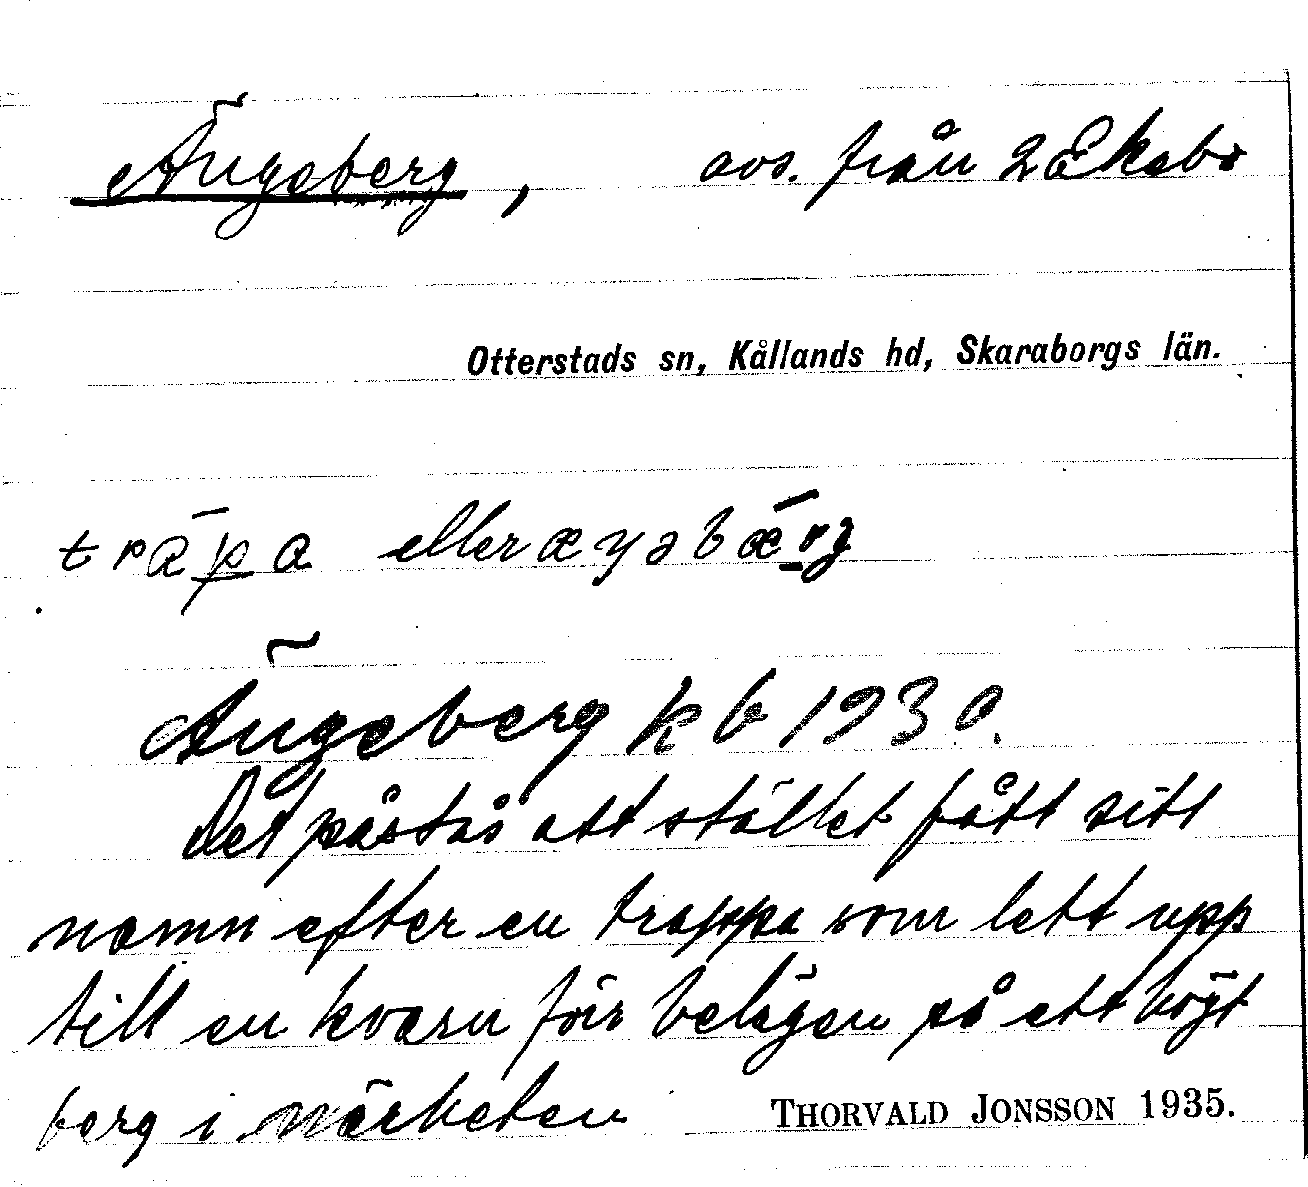 Ängeberg, avs. från 2 Ekebo
Otterstads sn, Kållands hd, Skaraborgs län.
trápa eller æŋəbǽrg
Ängeberg k b 1930.
Det påstås att stället fått sitt
namn efter en trappa som lett upp
till en kvarn förr belägen på ett högt
berg i närheten
THORVALD JONSSON 1935.